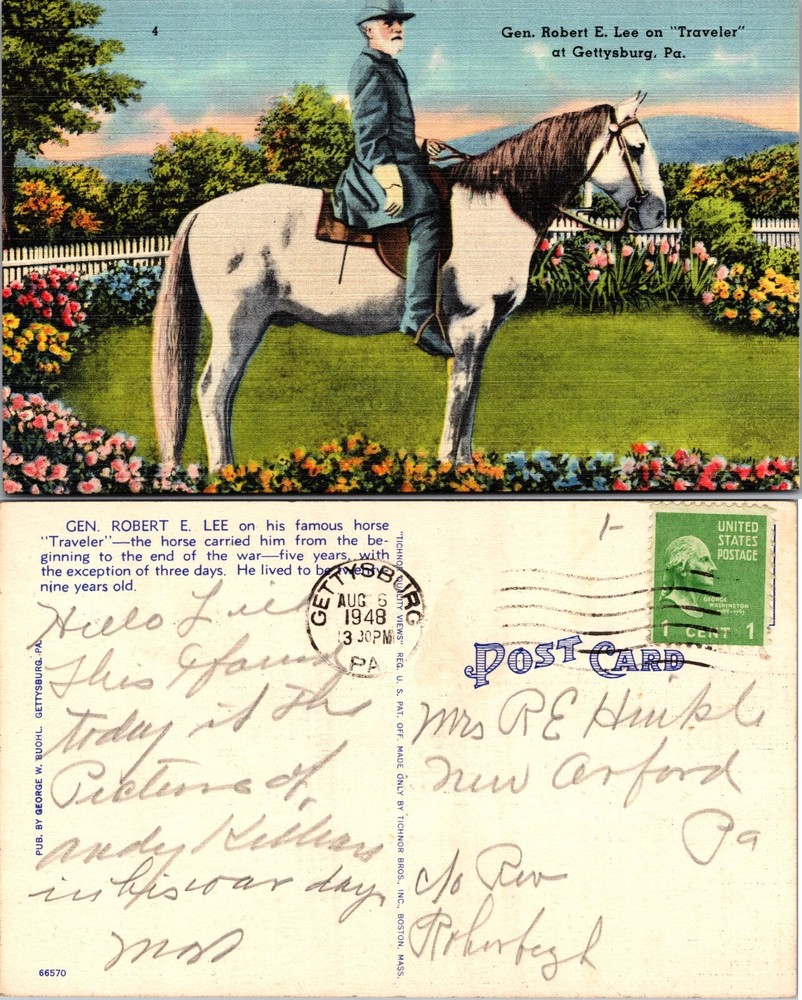 4
Gen. Robert E. Lee on "Traveler"
at Gettysburg, Pa.
GEN. ROBERT E. LEE on his famous horse
"Traveler"—the horse carried him from the be-
ginning to the end of the war—five years, with
the exception of three days. He lived to be twenty-
nine years old.
Hello
This I found
today it The
Picture of,
andy
in his war days
PUB. BY GEORGE W. BUOHL, GETTYSBURG, PA.
66570
"TICHNOR QUALITY VIEWS" REG. U. S. PAT. OFF. MADE ONLY BY TICHNOR BROS., INC., BOSTON, MASS.
GETTYSBURG
AUG 6
1948
3 30 PM
PA
1-
UNITED
STATES
POSTAGE
GEORGE
WASHINGTON
1 CENT 1
POST CARD
Mrs R E Hinkle
New Oxford
Pa
c/o Rev